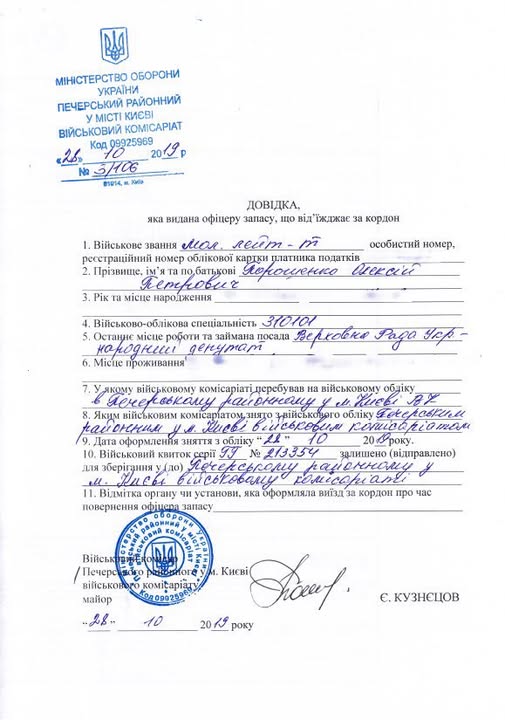 МІНІСТЕРСТВО ОБОРОНИ
УКРАЇНИ
ПЕЧЕРСЬКИЙ РАЙОННИЙ
У МІСТІ КИЄВІ
ВІЙСЬКОВИЙ КОМІСАРІАТ
Код 09925969
"28" 10 2019 р
№ 3/106
01014, м. Київ
ДОВІДКА,
яка видана офіцеру запасу, що від'їжджає за кордон
1. Військове звання мол. лейт-т особистий номер,
реєстраційний номер облікової картки платника податків
2. Прізвище, ім'я та по батькові Порошенко Олексій
Петрович
3. Рік та місце народження
4. Військово-облікова спеціальність 310101
5. Останнє місце роботи та займана посада Верховна Рада Укр-
народний депутат
6. Місце проживання
7. У якому військовому комісаріаті перебував на військовому обліку
в Печерському районному у м. Києві ВК
8. Яким військовим комісаріатом знято з військового обліку Печерським
районним у м. Києві військовим комісаріатом
9. Дата оформлення зняття з обліку " 28 " 10 2019 року.
10. Військовий квиток серії ГГ № 213354 залишено (відправлено)
для зберігання у (до) Печерському районному у
м. Києві військовому комісаріаті
11. Відмітка органу чи установи, яка оформляла виїзд за кордон про час
повернення офіцера запасу
Військовий
Печерського районного у м. Києві
військового комісаріату
майор Є. КУЗНЄЦОВ
Міністерство оборони України
Печерський районний у місті Києві
військовий комісаріат
Код 09925969
"28" 10 2019 року